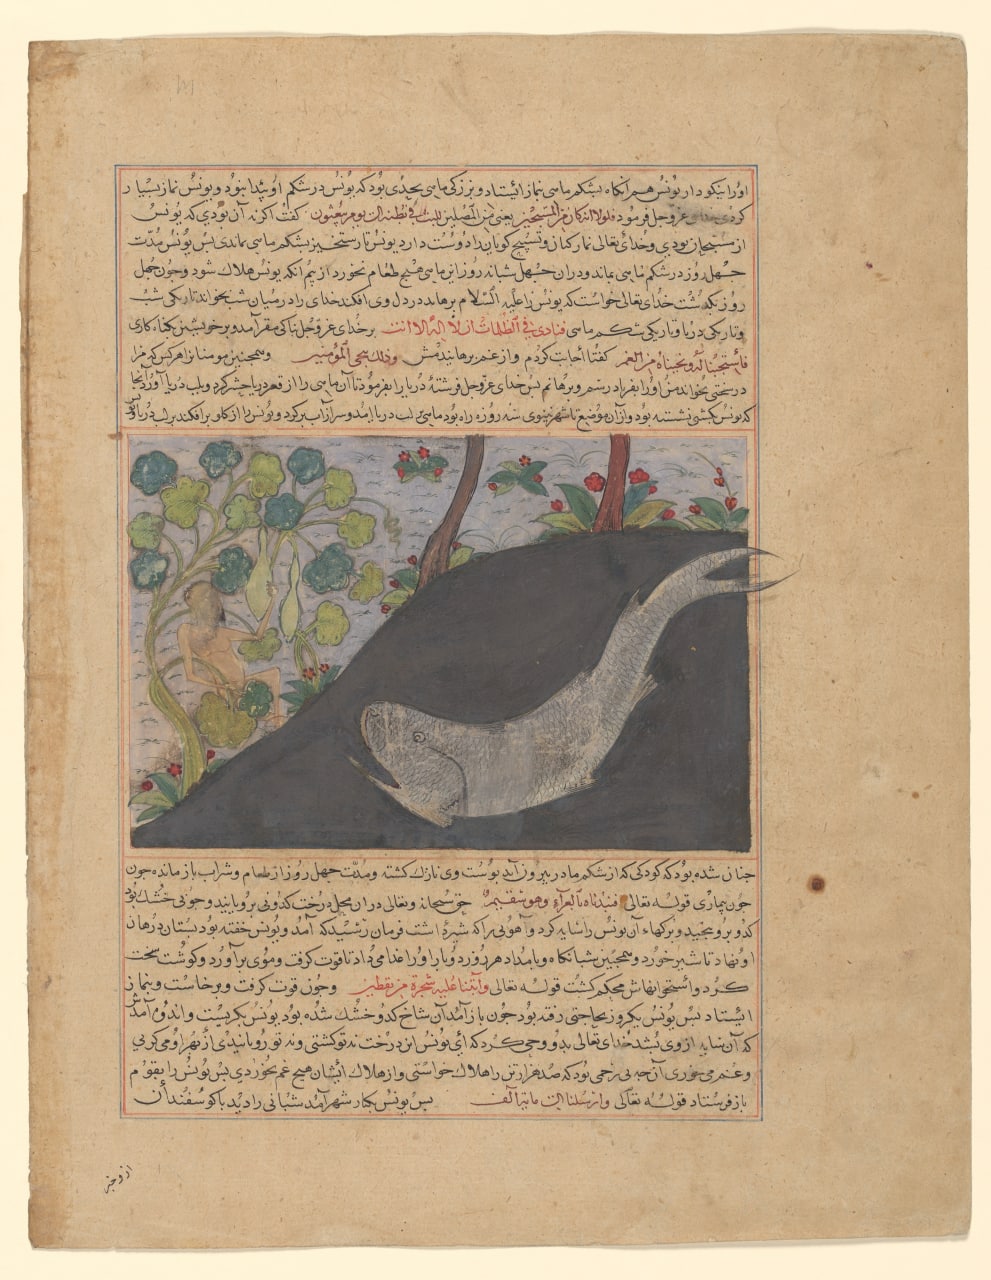 اورا نیکو دار یونس هم انکاه بشکم ماهی بنماز ایستاد و بزرکی ماهی بحدی بود که یونس در شکم او پیدا نبود و یونس نماز بسیار
کردی خدای عزوجل فرمود فلولا انه کان من المسبحین یعنی من المصلین للبث فی بطنه الی یوم یبعثون کفت اکر نه آن بودی که یونس
از مسبحان بودی و خدای تعالی نماز کنان و تسبیح کویان را دوست دارد یونس تا رستخیز بشکم ماهی بماندی بس یونس مدت
جهل روز در شکم ماهی بماند و دران جهل شبانه روز این ماهی هیچ طعام نخورد از بیم انکه یونس هلاک شود و جون جهل
روز بکذشت خدای تعالی خواست که یونس را علیه السلام برهاند در دل وی افکند خدای را در میان شب بخواند تاریکی شب
و تاریکی دریا و تاریکی شکم ماهی فنادی فی الظلمات ان لا اله الا انت بر خدای عزوجل بپاکی مقر آمد و بر خویشتن بکناه کاری
فاستجبنا له و نجیناه من الغم کفتا اجابت کردم و از غم برهانیدمش وذلک ننجی المؤمنین و همجنین مومنانرا هر کس که مرا
در سختی بخواند من اورا بفریاد رسم و برهانم بس خدای عزوجل فرشتهٔ دریا را بفرمود تا آن ماهی را از قعر دریا حشر کرد و بلب دریا آورد آنجا
که یونس بکشتی نشسته بود و از آن موضع تا شهر نینوی سه روزه راه بود ماهی بلب دریا امد و سر از آب بر کرد و یونس را از کلو بر افکند بلب دریا و
جنان شده بود که کودکی که از شکم مادر بیرون آید پوست وی نازک کشته و مدت جهل روز از طعام و شراب باز مانده جون
جون بیماری قوله تعالی فنبذناه بالعراء وهو سقیم حق سبحانه و تعالی در ان محل درخت کدوئی برویانید و جوبی خشک بود
کدو برو بیجید و برکهاء آن یونس را سایه کرد و آهوئی را که شیره داشت فرمان رسید که آمد و یونس خفته بود بستان در دهان
او نهاد تا شیر خورد و همجنین شبانکاه و بامداد هر روز دو بار اورا غذا می داد تا قوت کرفت و موی بر آورد و کوشت سخت
کرد و استخوانهاش محکم کشت قوله تعالی وانبتنا علیه شجرة من یقطین و جون قوت کرفت و برخاست و بنماز
ایستاد بس یونس یکروز بحاجتی رفته بود جون باز آمد آن شاخ کدو خشک شده بود یونس بکریست و اندوه آمدش
که آن سایه از وی بشد خدای تعالی بدو وحی کرد که ای یونس این درخت نه تو کشتی و نه تو رویانیدی از بهر او می کریی
و غم می خوری آن جه بی رحمی بود که صد هزار تن را هلاک خواستی و از هلاک ایشان هیچ غم نخوردی بس یونس را بقوم
باز فرستاد قوله تعالی وارسلناه الی مائة الف بس یونس بکنار شهر آمد شبانی را دید با کوسفندان